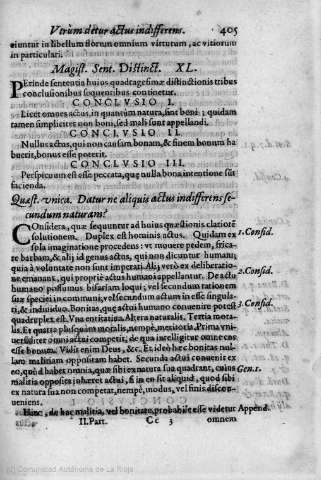 Vtrum detur actus indifferens. 405
ciuntur in libellum florum omnium virtutum, ac vitiorum
in particulari.
Magist. Sent. Distinct. XL.
PErinde sententia huius quadragesimæ distinctionis tribus
conclusionibus sequentibus continetur.
CONCLVSIO I.
Licet omnes actus, in quantum natura, sint boni; quidam
tamen simpliciter non boni, sed mali sunt appellandi.
CONCLVSIO II.
Nullus actus, qui non causam bonam, & finem bonum ha
buerit, bonus esse poterit.
CONCLVSIO III.
Perspicuum est esse peccata, quæ nulla bona intentione sūt
facienda.
Quæst. vnica. Datur ne aliquis actus indifferens se-
cundum naturam?
COnsidera, quæ sequuntur ad huius quæstionis claritotē
solutionem. Duplex est hominis actus. Quidam ex 1. Consid.
sola imaginatione procedens: vt mouere pedem, frica-
re barbam, & alij id genus actus, qui non dicuntur humani;
quia à voluntate non sunt imperati. Alij verò ex deliberatio-
ne emanant, qui propriè actus humani appellantur. De actu 2. Consid.
humano possumus bifariam loqui; vel secundum rationem
suæ speciei in communi, vel secundum actum in esse singula-
ri, & indiuiduo. Bonitas, quæ actui humano conuenire potest 3. Consid.
quadruplex est. Vna entitatiua. Altera naturalis. Tertia mora-
lis. Et quarta plusquàm moralis, nempè, meritoria. Prima vni-
uersaliter omni actui competit; de qua intelligitur omne ens
esse bonum. Vidit enim Deus, &c. Et ideò hęc bonitas nul-
lam malitiam oppositam habet. Secunda actui conuenit ex
eo, quòd habet omnia, quæ sibi ex natura sua quadrant, cuius Gen. 1.
malitia opposita inhæret actui, si in eo sit aliquid, quod sibi
ex natura sua non competat, nempè, modus, vel finis discon-
ueniens.
Hinc, de hac malitia, vel bonitate, probabile esse videtur Append.
II. Part. Cc 3 omnem
(c) Comunidad Autónoma de La Rioja